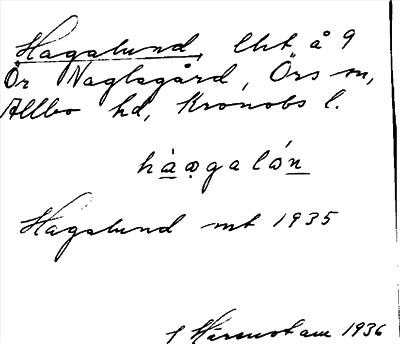 Hagalund, lht å 9
Ör Naglagård, Örs sn,
Allbo hd, Kronobs l.
hàǫgalón
Hagalund mt 1935
1936